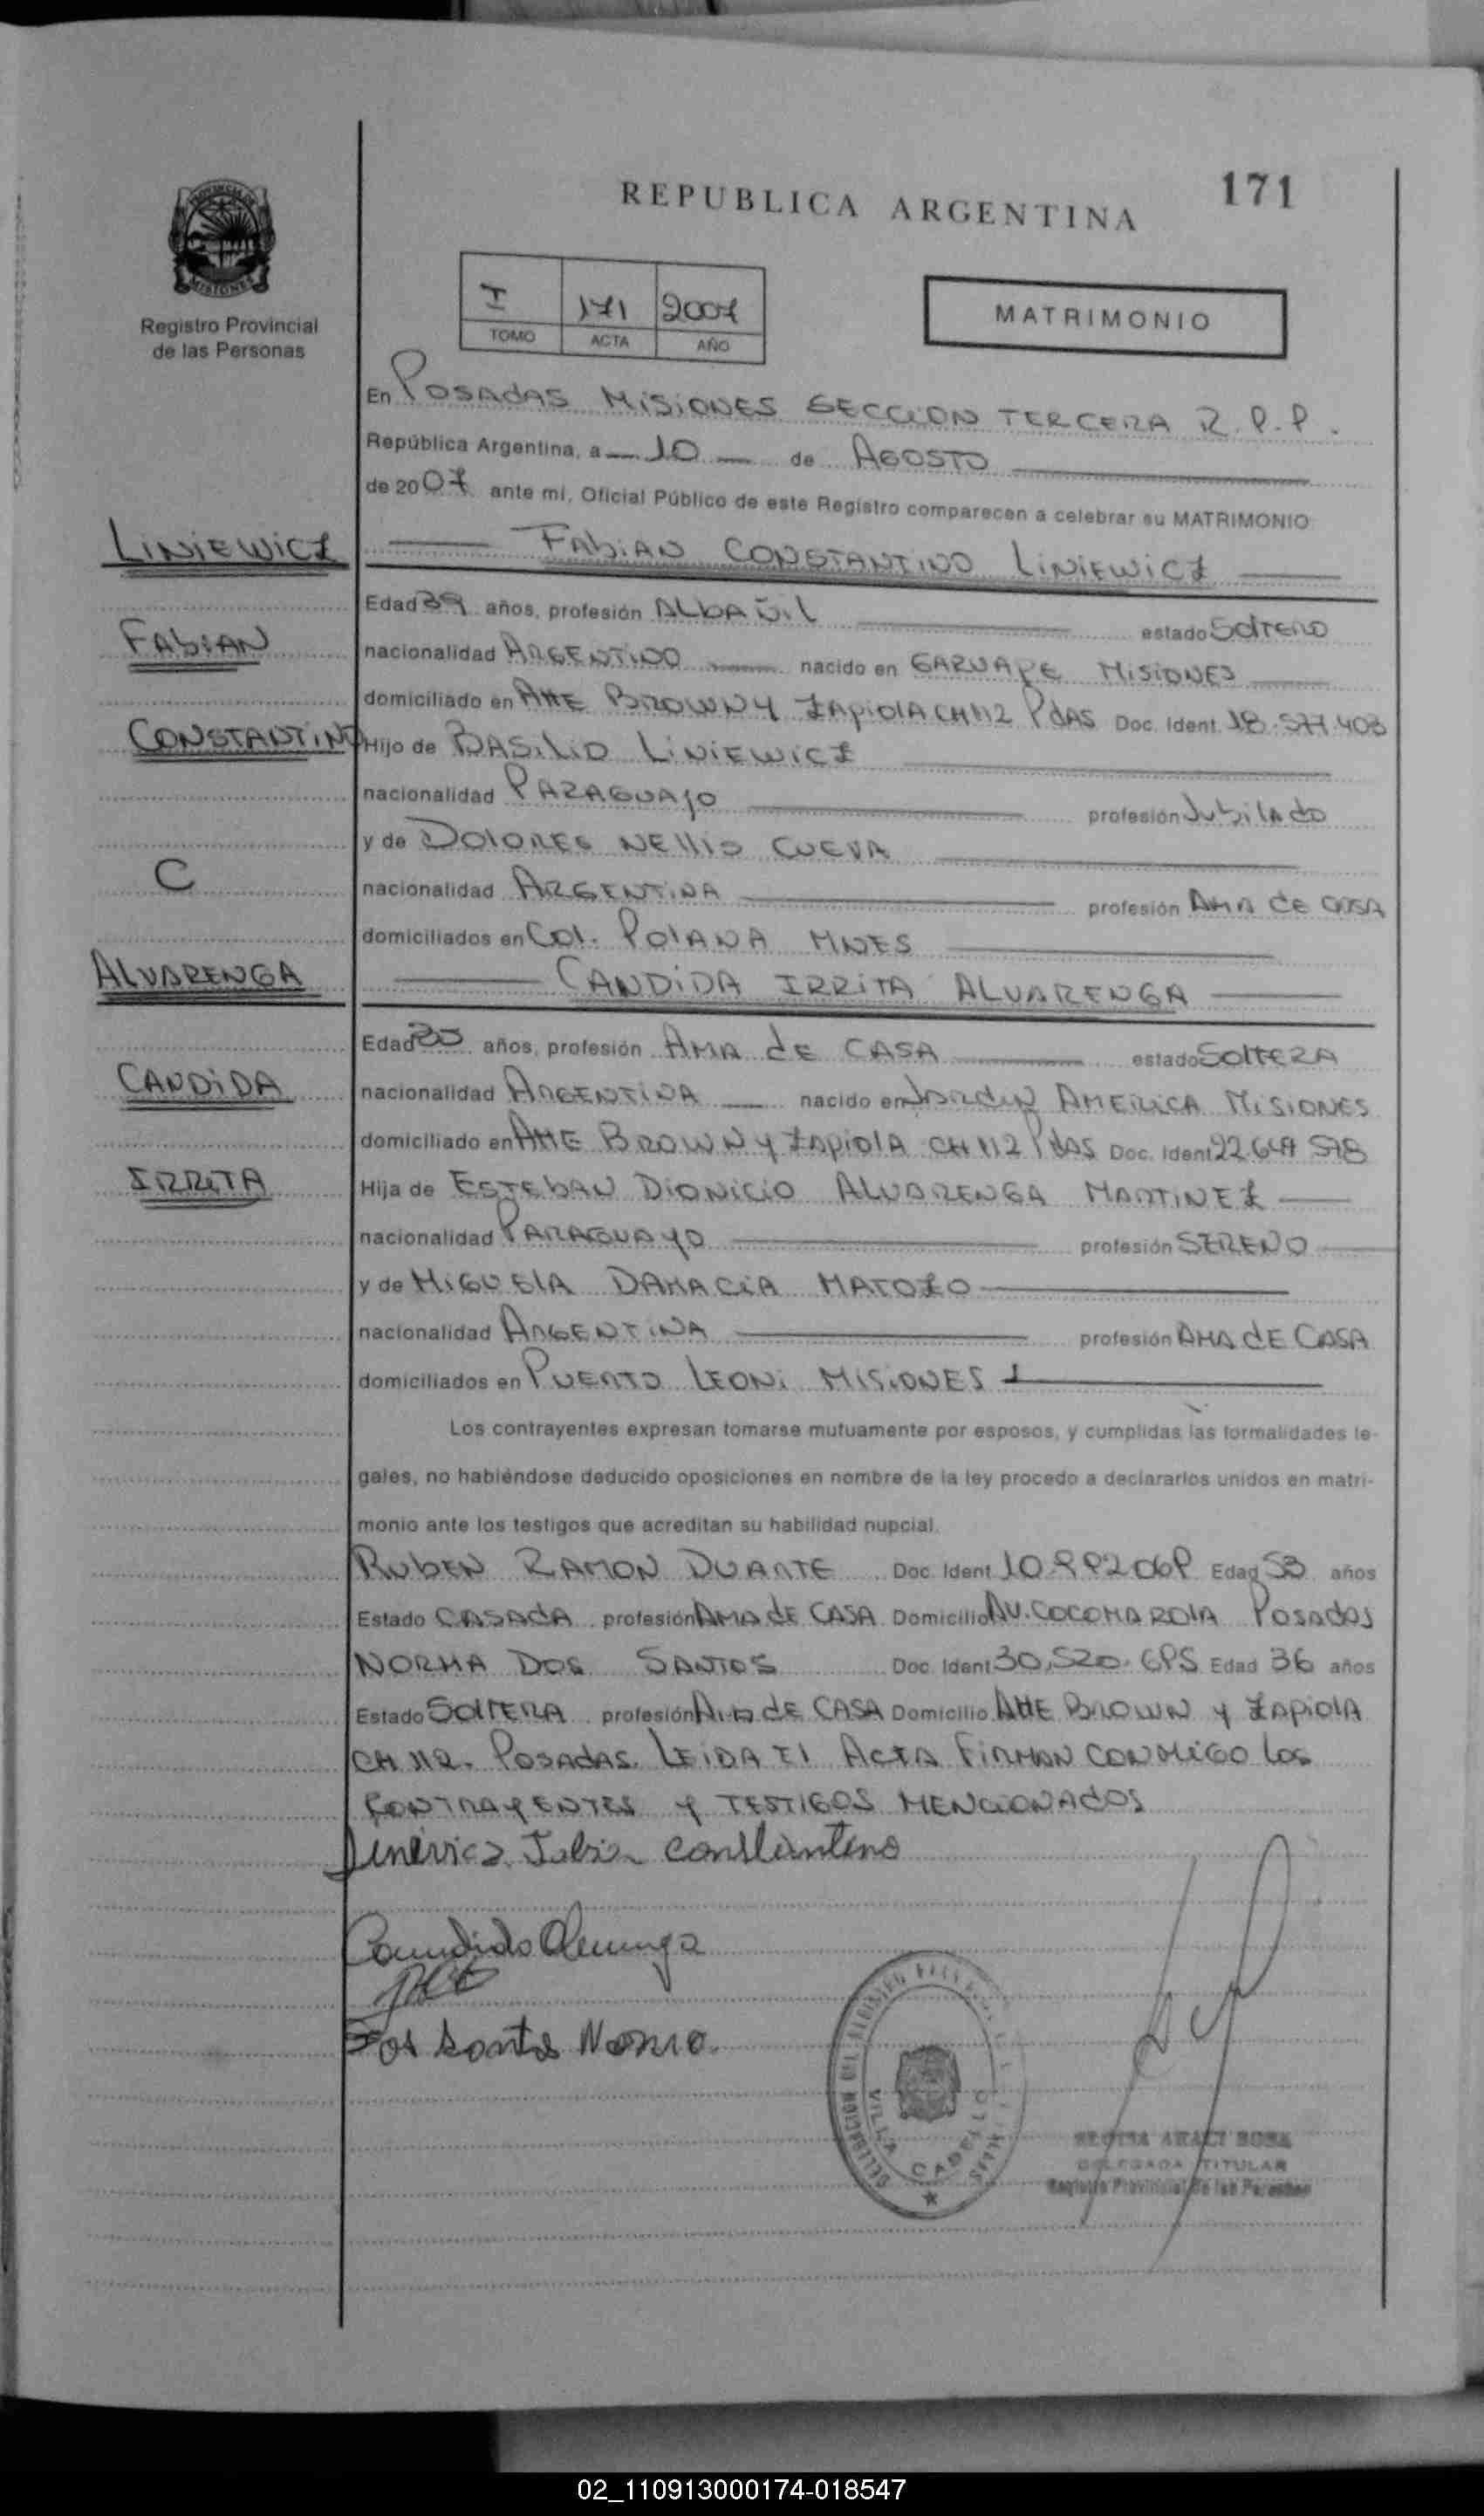 171
REPUBLICA ARGENTINA
PROVINCIA DE
MISIONES
Registro Provincial
de las Personas
I 171 2007
TOMO ACTA AÑO
MATRIMONIO
En POSADAS MISIONES SECCION TERCERA R.P.P.
República Argentina, a 10 de AGOSTO
de 2007 ante mi, Oficial Público de este Registro comparecen a celebrar su MATRIMONIO
LINIEWICZ
FABIAN CONSTANTINO LINIEWICZ
Edad 39 años, profesión ALBAÑIL estado SOLTERO
FABIAN
nacionalidad ARGENTINO nacido en GARUAPE MISIONES
domiciliado en ALTE BROWN Y ZAPIOLA CH 112 PDAS Doc. Ident. 18.577.403
CONSTANTINO
Hijo de BASILIO LINIEWICZ
nacionalidad PARAGUAYO profesión JUBILADO
y de DOLORES NELLIS CUEVA
C
nacionalidad ARGENTINA profesión AMA DE CASA
domiciliados en COL. POLANA MNES
ALVARENGA
CANDIDA IRRITA ALVARENGA
Edad años, profesión AMA DE CASA estado SOLTERA
CANDIDA
nacionalidad ARGENTINA nacido en JARDIN AMERICA MISIONES
domiciliado en ALTE BROWN Y ZAPIOLA CH 112 PDAS Doc. Ident
IRRITA
Hija de ESTEBAN DIONICIO ALVARENGA MARTINEZ
nacionalidad PARAGUAYO profesión SERENO
y de MIGUELA DAMACIA MATOZO
nacionalidad ARGENTINA profesión AMA DE CASA
domiciliados en PUERTO LEONI MISIONES
Los contrayentes expresan tomarse mutuamente por esposos, y cumplidas las formalidades le-
gales, no habiéndose deducido oposiciones en nombre de la ley procedo a declararlos unidos en matri-
monio ante los testigos que acreditan su habilidad nupcial.
RUBEN RAMON DUARTE Doc. Ident Edad 53 años
Estado CASADA profesión AMA DE CASA Domicilio AV. COCOMAROLA POSADAS
NORMA DOS SANTOS Doc. Ident Edad 36 años
Estado SOLTERA profesión AMA DE CASA Domicilio ALTE BROWN Y ZAPIOLA
CH 112. POSADAS. LEIDA EL ACTA FIRMAN CONMIGO LOS
CONTRAYENTES Y TESTIGOS MENCIONADOS
constantino
Dos Santos Norma
VILLA CABELLO
DELEGADA TITULAR
Registro Provincial de las Personas
02_110913000174-018547